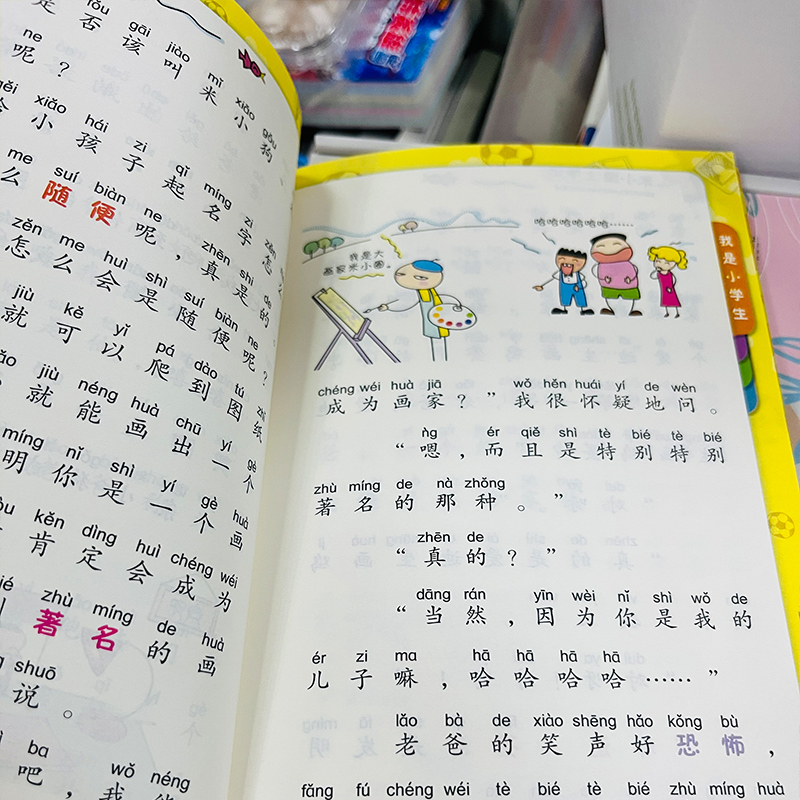 fǒu gāi jiào mǐ xiǎo gǒu
是否该叫米小狗
ne
呢？
xiǎo hái zi qǐ míng zi zěn
小孩子起名字怎
me suí biàn ne zhēn shì de
么随便呢，真是的。
zěn me huì shì suí biàn ne
怎么会是随便呢？
jiù kě yǐ pá dào tú zhǐ
就可以爬到图纸
jiù néng huà chū yí gè
就能画出一个
míng nǐ shì yí gè huà
明你是一个画
kěn dìng huì chéng wéi
肯定会成为
zhù míng de huà
著名的画
shuō
说。
ba wǒ néng
吧，我能
哈哈哈哈哈哈……
我是大
画家米小圈。
我是小学生
chéng wéi huà jiā wǒ hěn huái yí de wèn
成为画家？”我很怀疑地问。
ǹg ér qiě shì tè bié tè bié
“嗯，而且是特别特别
zhù míng de nà zhǒng
著名的那种。”
zhēn de
“真的？”
dāng rán yīn wèi nǐ shì wǒ de
“当然，因为你是我的
ér zi ma hā hā hā hā
儿子嘛，哈哈哈哈……”
lǎo bà de xiào shēng hǎo kǒng bù
老爸的笑声好恐怖，
fǎng fú chéng wéi tè bié tè bié zhù míng huà